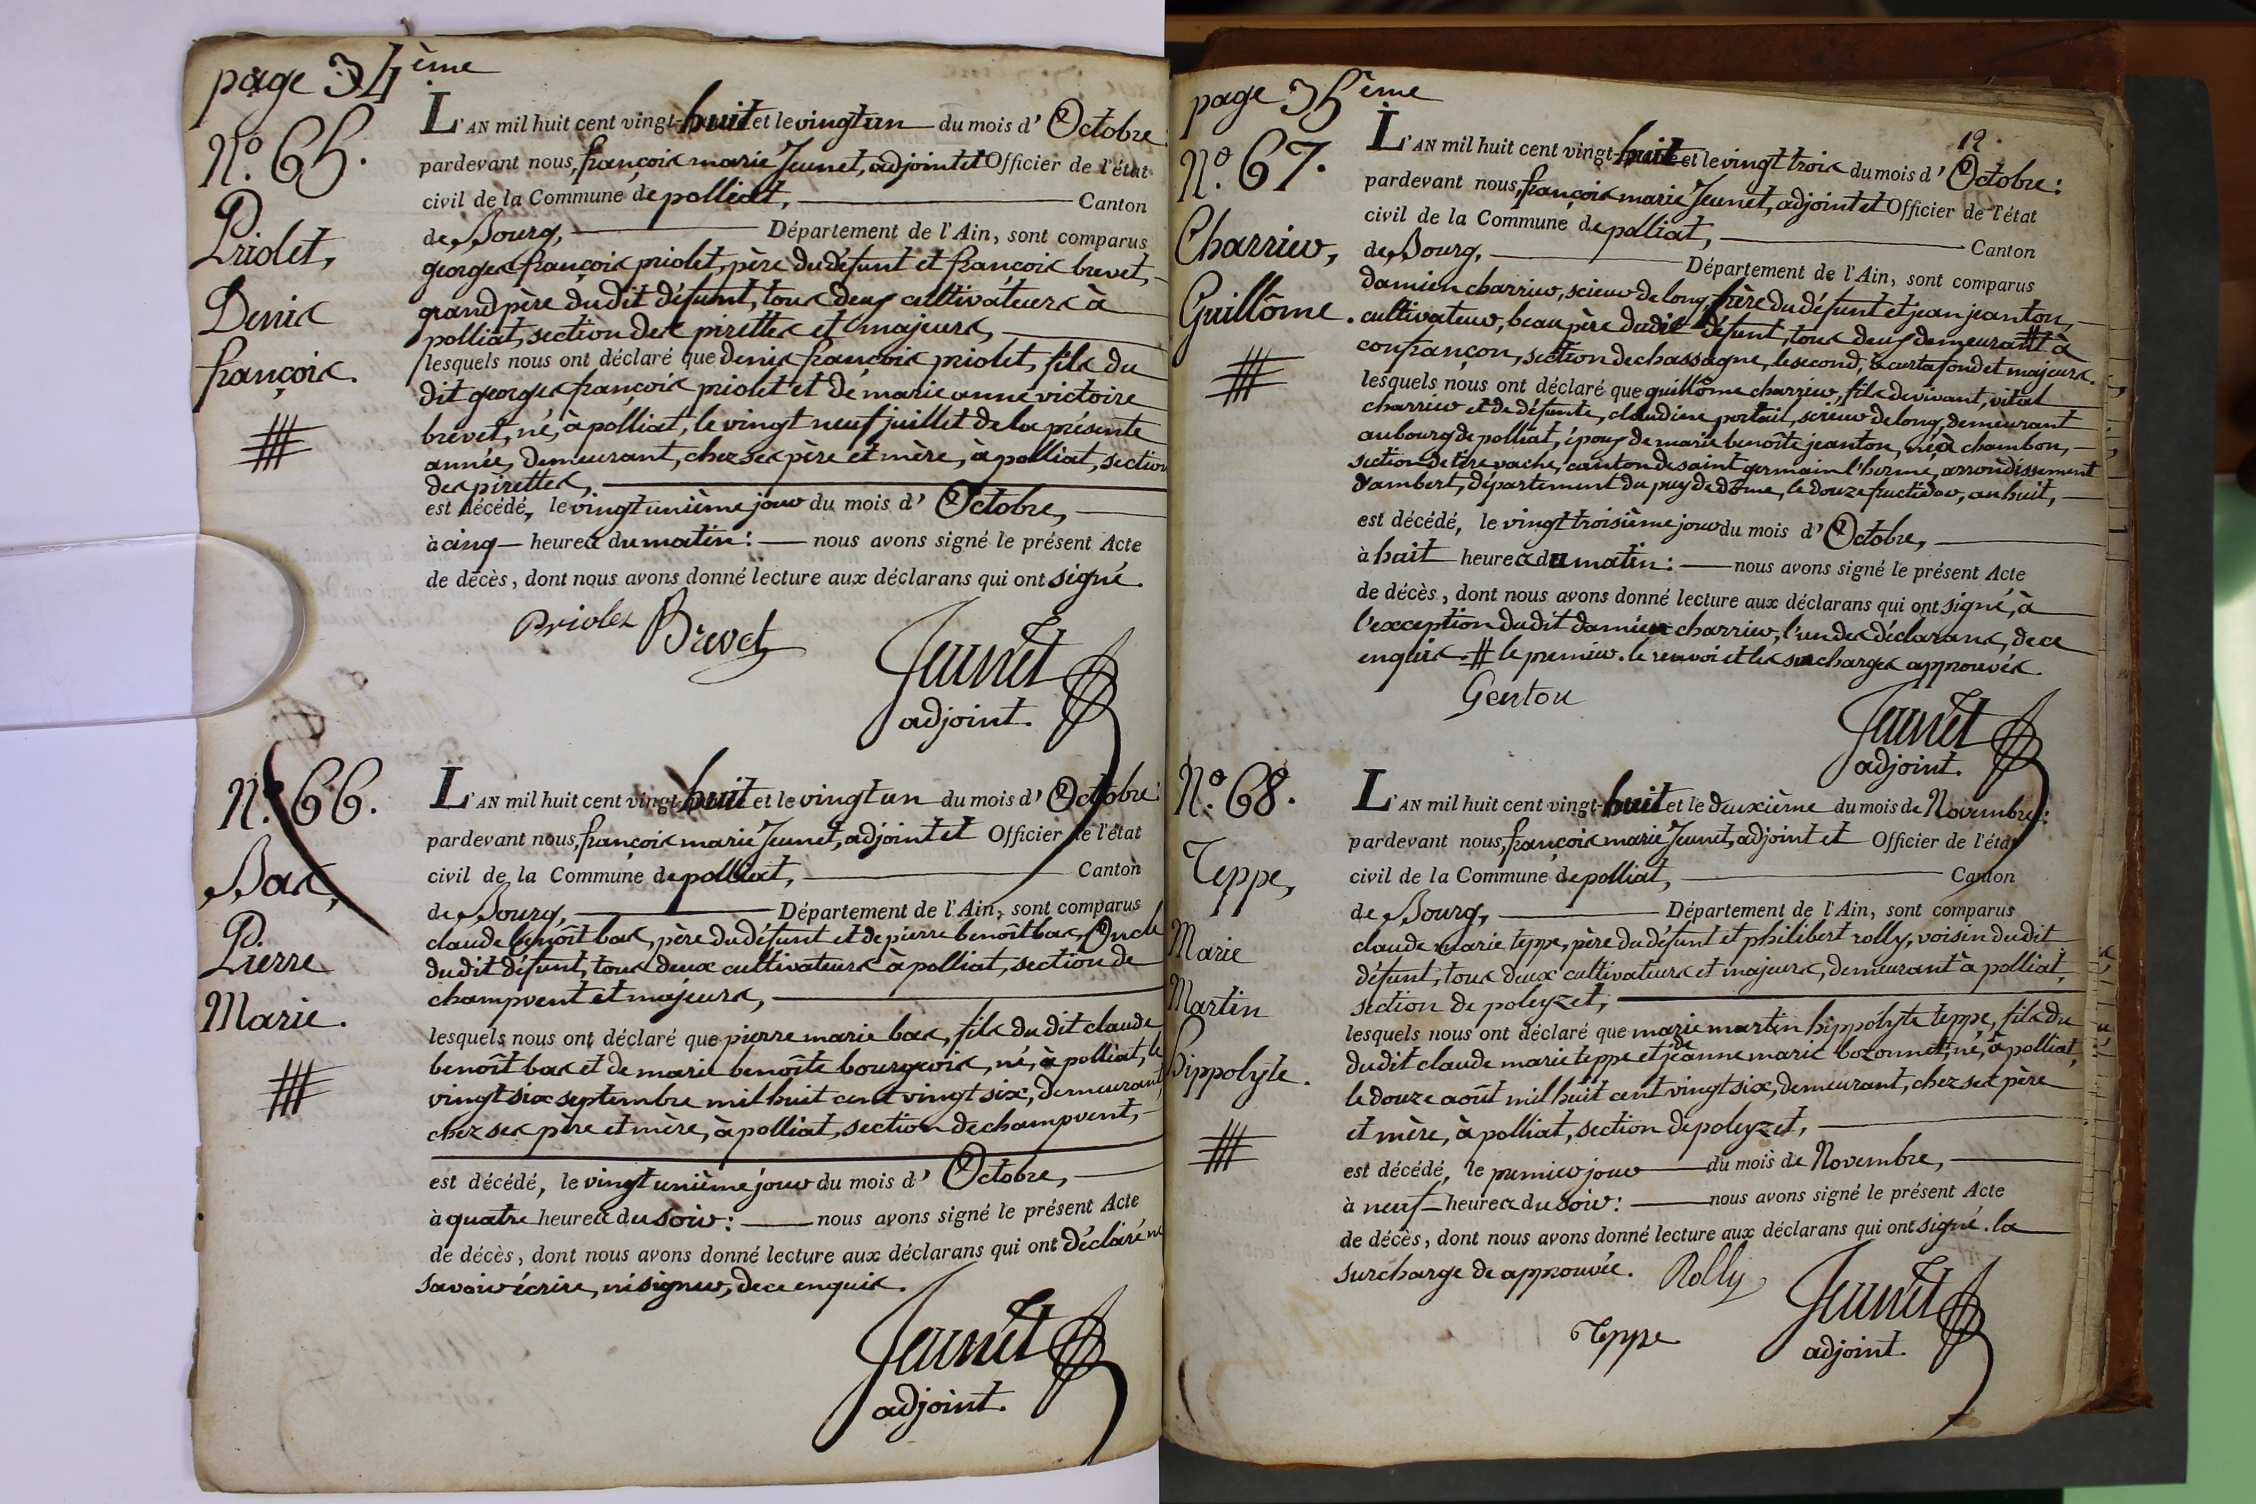 page 34ème
N.º 65.
Priolet,
Denis
françois.
L'AN mil huit cent vingt-huit et le vingt un du mois d'Octobre
pardevant nous, françois marie Jeunet, adjoint et Officier de l'état
civil de la Commune de polliat, Canton
de Bourg, Département de l'Ain, sont comparus
georges françois priolet, père du défunt et françois brevet,
grand père dudit défunt, tous deux cultivateurs à
polliat, section des pirettes et majeurs,
lesquels nous ont déclaré que denis françois priolet, fils du
dit georges françois priolet et de marie anne victoire
brevet, né, à polliat, le vingt neuf juillet de la présente
année, demeurant, chez ses père et mère, à polliat, section
des pirettes,
est décédé, le vingt unième jour du mois d'Octobre,
à cinq heures du matin: nous avons signé le présent Acte
de décès, dont nous avons donné lecture aux déclarans qui ont signé.
Priolet Brevet
Jeunet
adjoint.
N.º 66.
Bas,
Pierre
Marie.
L'AN mil huit cent vingt-huit et le vingt un du mois d'Octobre:
pardevant nous, françois marie Jeunet, adjoint et Officier de l'état
civil de la Commune de polliat, Canton
de Bourg, Département de l'Ain, sont comparus
claude benoît bas, père du défunt et de pierre benoît bas, Oncle
dudit défunt, tous deux cultivateurs à polliat, section de
champvent et majeurs,
lesquels nous ont déclaré que pierre marie bas, fils du dit claude
benoît bas et de marie benoîte bourgeois, né, à polliat, le
vingt six septembre mil huit cent vingt six, demeurant,
chez ses père et mère, à polliat, section de champvent,
est décédé, le vingt unième jour du mois d'Octobre,
à quatre heures du soir: nous avons signé le présent Acte
de décès, dont nous avons donné lecture aux déclarans qui ont déclaré ne
savoir écrire, ni signer, de ce enquis.
Jeunet
adjoint.
page 35ème
18.
N.º 67.
Charrier,
Guillôme.
L'AN mil huit cent vingt-huit et le vingt trois du mois d'Octobre:
pardevant nous, françois marie Jeunet, adjoint et Officier de l'état
civil de la Commune de polliat, Canton
de Bourg, Département de l'Ain, sont comparus
damien charrier, scieur de long, frère du défunt et jean jeanton,
cultivateur, beau père dudit défunt, tous deux demeurant # à
confrançon, section de chassagne, le second, à curtafond et majeurs.
lesquels nous ont déclaré que guillôme charrier, fils de vivant, vital
charrier et de défunte, claudine portail, scieur de long, demeurant
au bourg de polliat, époux de marie benoîte jeanton, né, à chambon,
section de tirevache, canton de saint germain l'herme, arrondissement
d'ambert, département du puy de dôme, le douze fructidor, an huit,
est décédé, le vingt troisième jour du mois d'Octobre,
à huit heures du matin: nous avons signé le présent Acte
de décès, dont nous avons donné lecture aux déclarans qui ont signé, à
l'exception dudit damien charrier, l'un des déclarans, de ce
enquis. # le premier. le renvoi et les surcharges approuvés.
Genton
Jeunet
adjoint.
N.º 68.
Teppe,
Marie
Martin
hippolyte.
L'AN mil huit cent vingt-huit et le deuxième du mois de Novembre:
pardevant nous, françois marie Jeunet, adjoint et Officier de l'état
civil de la Commune de polliat, Canton
de Bourg, Département de l'Ain, sont comparus
claude marie teppe, père du défunt et philibert rolly, voisin dudit
défunt, tous deux cultivateurs et majeurs, demeurant à polliat,
section de poleyzet,
lesquels nous ont déclaré que marie martin hippolyte teppe, fils du
dudit claude marie teppe et de jeanne marie bozonnet, né, à polliat,
le douze août mil huit cent vingt six, demeurant, chez ses père
et mère, à polliat, section de poleyzet,
est décédé, le premier jour du mois de Novembre,
à neuf heures du soir: nous avons signé le présent Acte
de décès, dont nous avons donné lecture aux déclarans qui ont signé. la
surcharge de approuvée. Rolly
Teppe
Jeunet
adjoint.